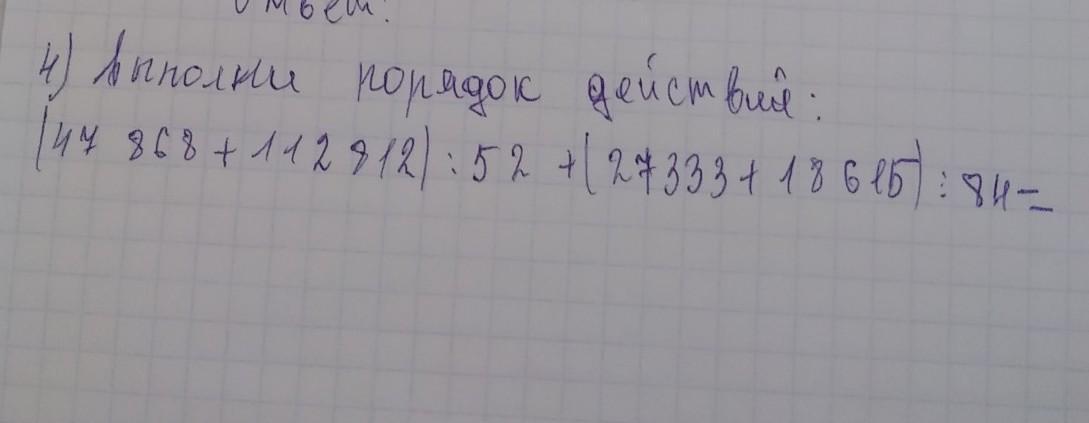 Ответ:
4) Выполни порядок действий:
(47 868 + 112 812) : 52 + (27333 + 18 615) : 84 =